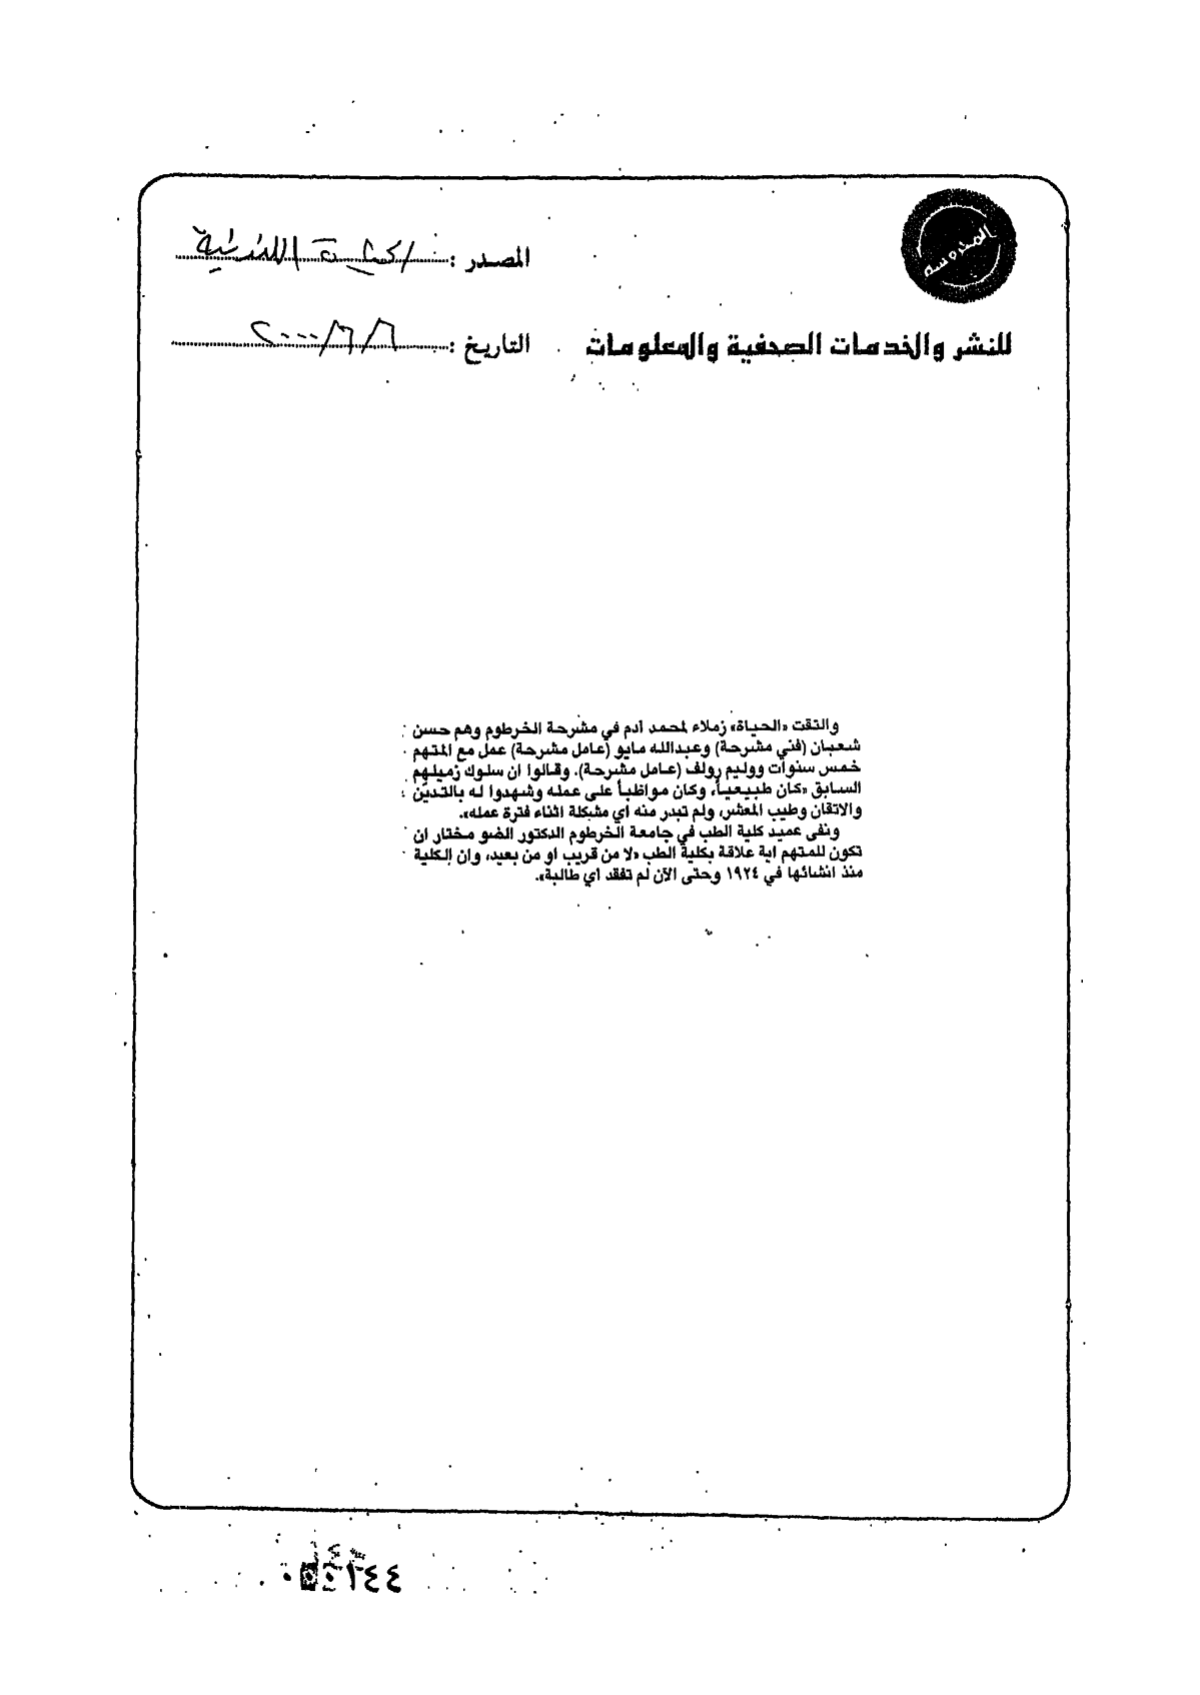 المحروسة
المصدر : الحياة اللندنية
للنشر والخدمات الصحفية والمعلومات
التاريخ : ٢٠٠٠/٦/٦
والتقت «الحياة» زملاء لمحمد آدم في مشرحة الخرطوم وهم حسن
شعبان (فني مشرحة) وعبدالله مايو (عامل مشرحة) عمل مع المتهم
خمس سنوات ووليم رولف (عامل مشرحة). وقالوا ان سلوك زميلهم
السابق «كان طبيعياً، وكان مواظباً على عمله وشهدوا له بالتديّن
والاتقان وطيب المعشر، ولم تبدر منه أي مشكلة اثناء فترة عمله».
ونفى عميد كلية الطب في جامعة الخرطوم الدكتور الضو مختار ان
تكون للمتهم اية علاقة بكلية الطب «لا من قريب او من بعيد، وان الكلية
منذ انشائها في ١٩٢٤ وحتى الآن لم تفقد اي طالبة».